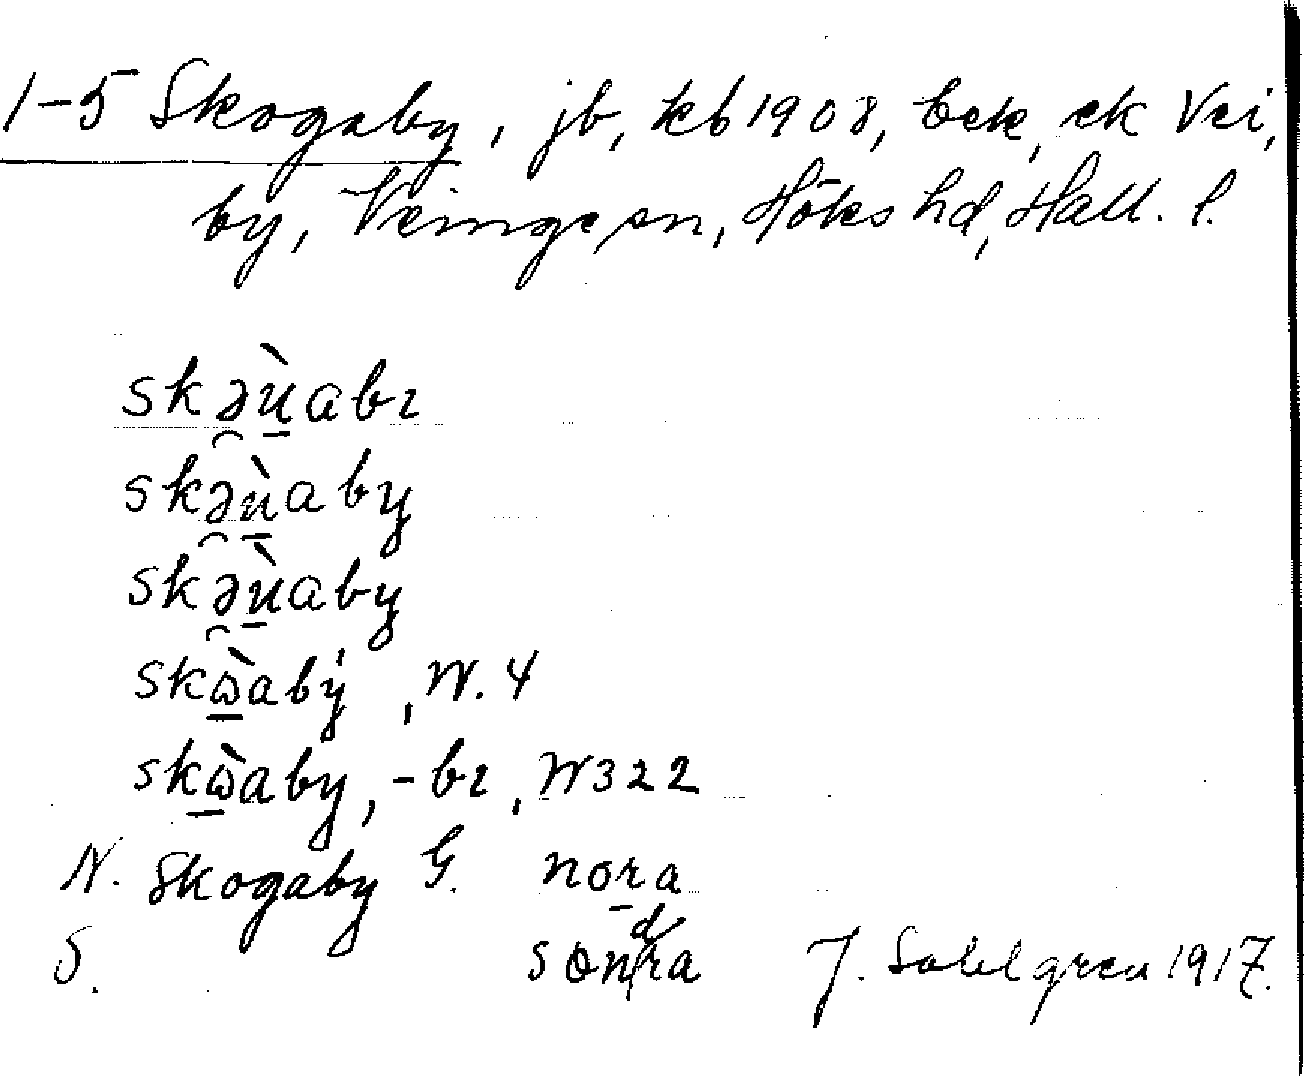 1-5 Skogaby, jb, kb 1908, bek, ek Vei,
by, Veinge sn, Höks hd, Hall. l.
skə̯ṳ̀abɪ
skə̯ṳ̀aby
skə̯ṳ̀aby
skὼ̱abý, W. 4
skὼ̱aby, -bɪ, W 322
N. Skogaby G. nora
S. sondra J. Sahlgren 1917.